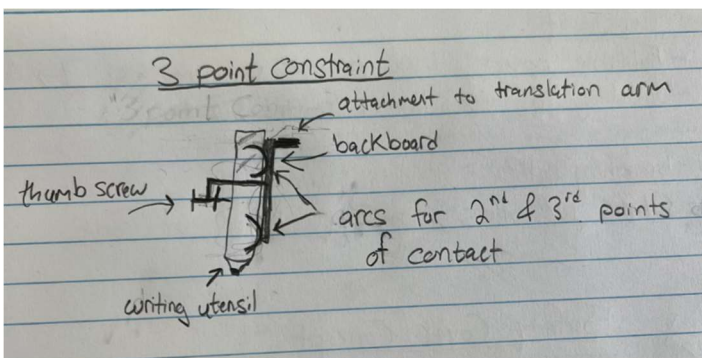 3 point constraint
attachment to translation arm
backboard
thumb screw
arcs for 2nd & 3rd points
of contact
writing utensil